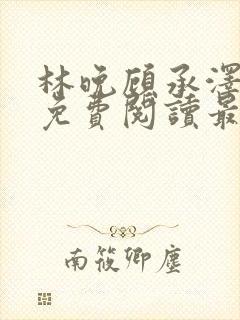 林晚顾承澤
免費閱讀最
南筱卿塵